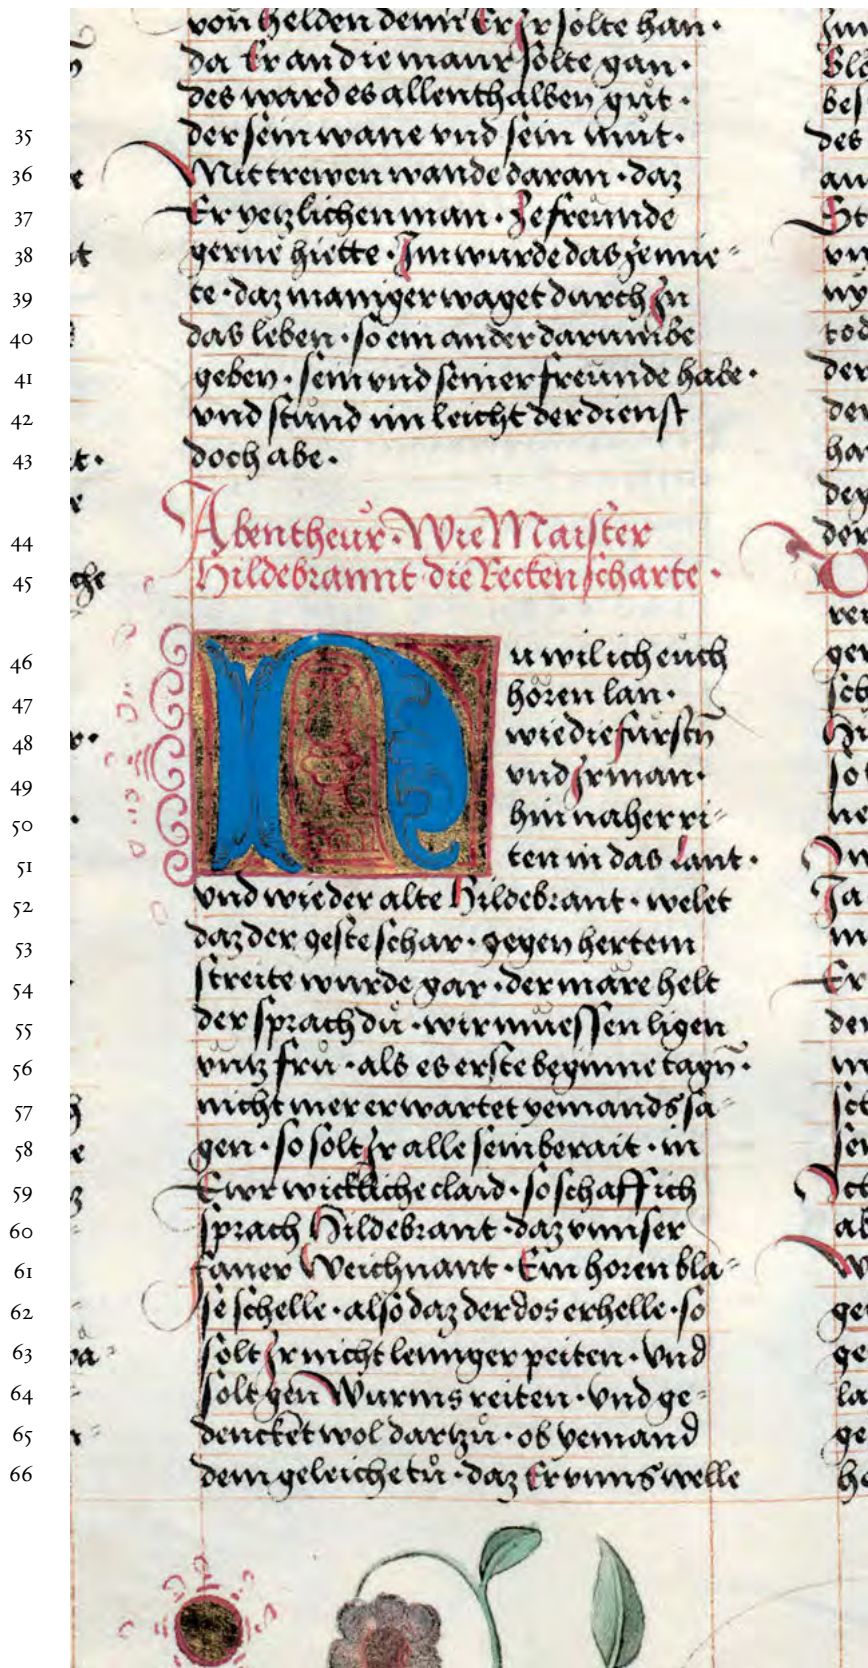 von helden denn Er Ir solte han ·
da Er an die maur solte gan ·
des ward es allenthalben gůt ·
35 der sein wane vnd sein můt ·
36 Mit trewen wande daran · daz
37 Er yetzlichen man · Ze freunde
38 gerne hiette · Im wurde das ze mie=
39 te · daz maniger waget durch In
40 das leben · so ein ander darumbe
41 geben · sein vnd seiner freunde habe ·
42 vnd stůnd im leicht der dienst
43 doch abe ·
44 Abentheur · Wie Maister
45 Hildebrannt die Recken scharte ·
46 Nu wil ich euch
47 hören lan ·
48 wie die fürstn̄
49 vnd Ir man ·
50 hin naher ri=
51 ten in das Lant ·
52 vnd wie der alte Hildebrant · welet
53 daz der geste schar · gegen hertem
54 streite wurde gar · der märe helt
55 der sprach dů · wir muessen ligen
56 vntz frů · als es erste beginne tagn̄ ·
57 nicht mer erwartet yemands sa=
58 gen · so solt Ir alle sein berait · in
59 Ewr wickliche claid · so schaff ich
60 sprach Hildebrant · daz vnnser
61 faner Weichnant · Ein horen bla=
62 se schelle · also daz der dos erhelle · so
63 solt Ir nicht lennger peiten · Vnd
64 solt gen Wurms reiten · Vnd ge=
65 dencket wol dartzů · ob yemand
66 dem geleiche tů · daz Er vnns welle